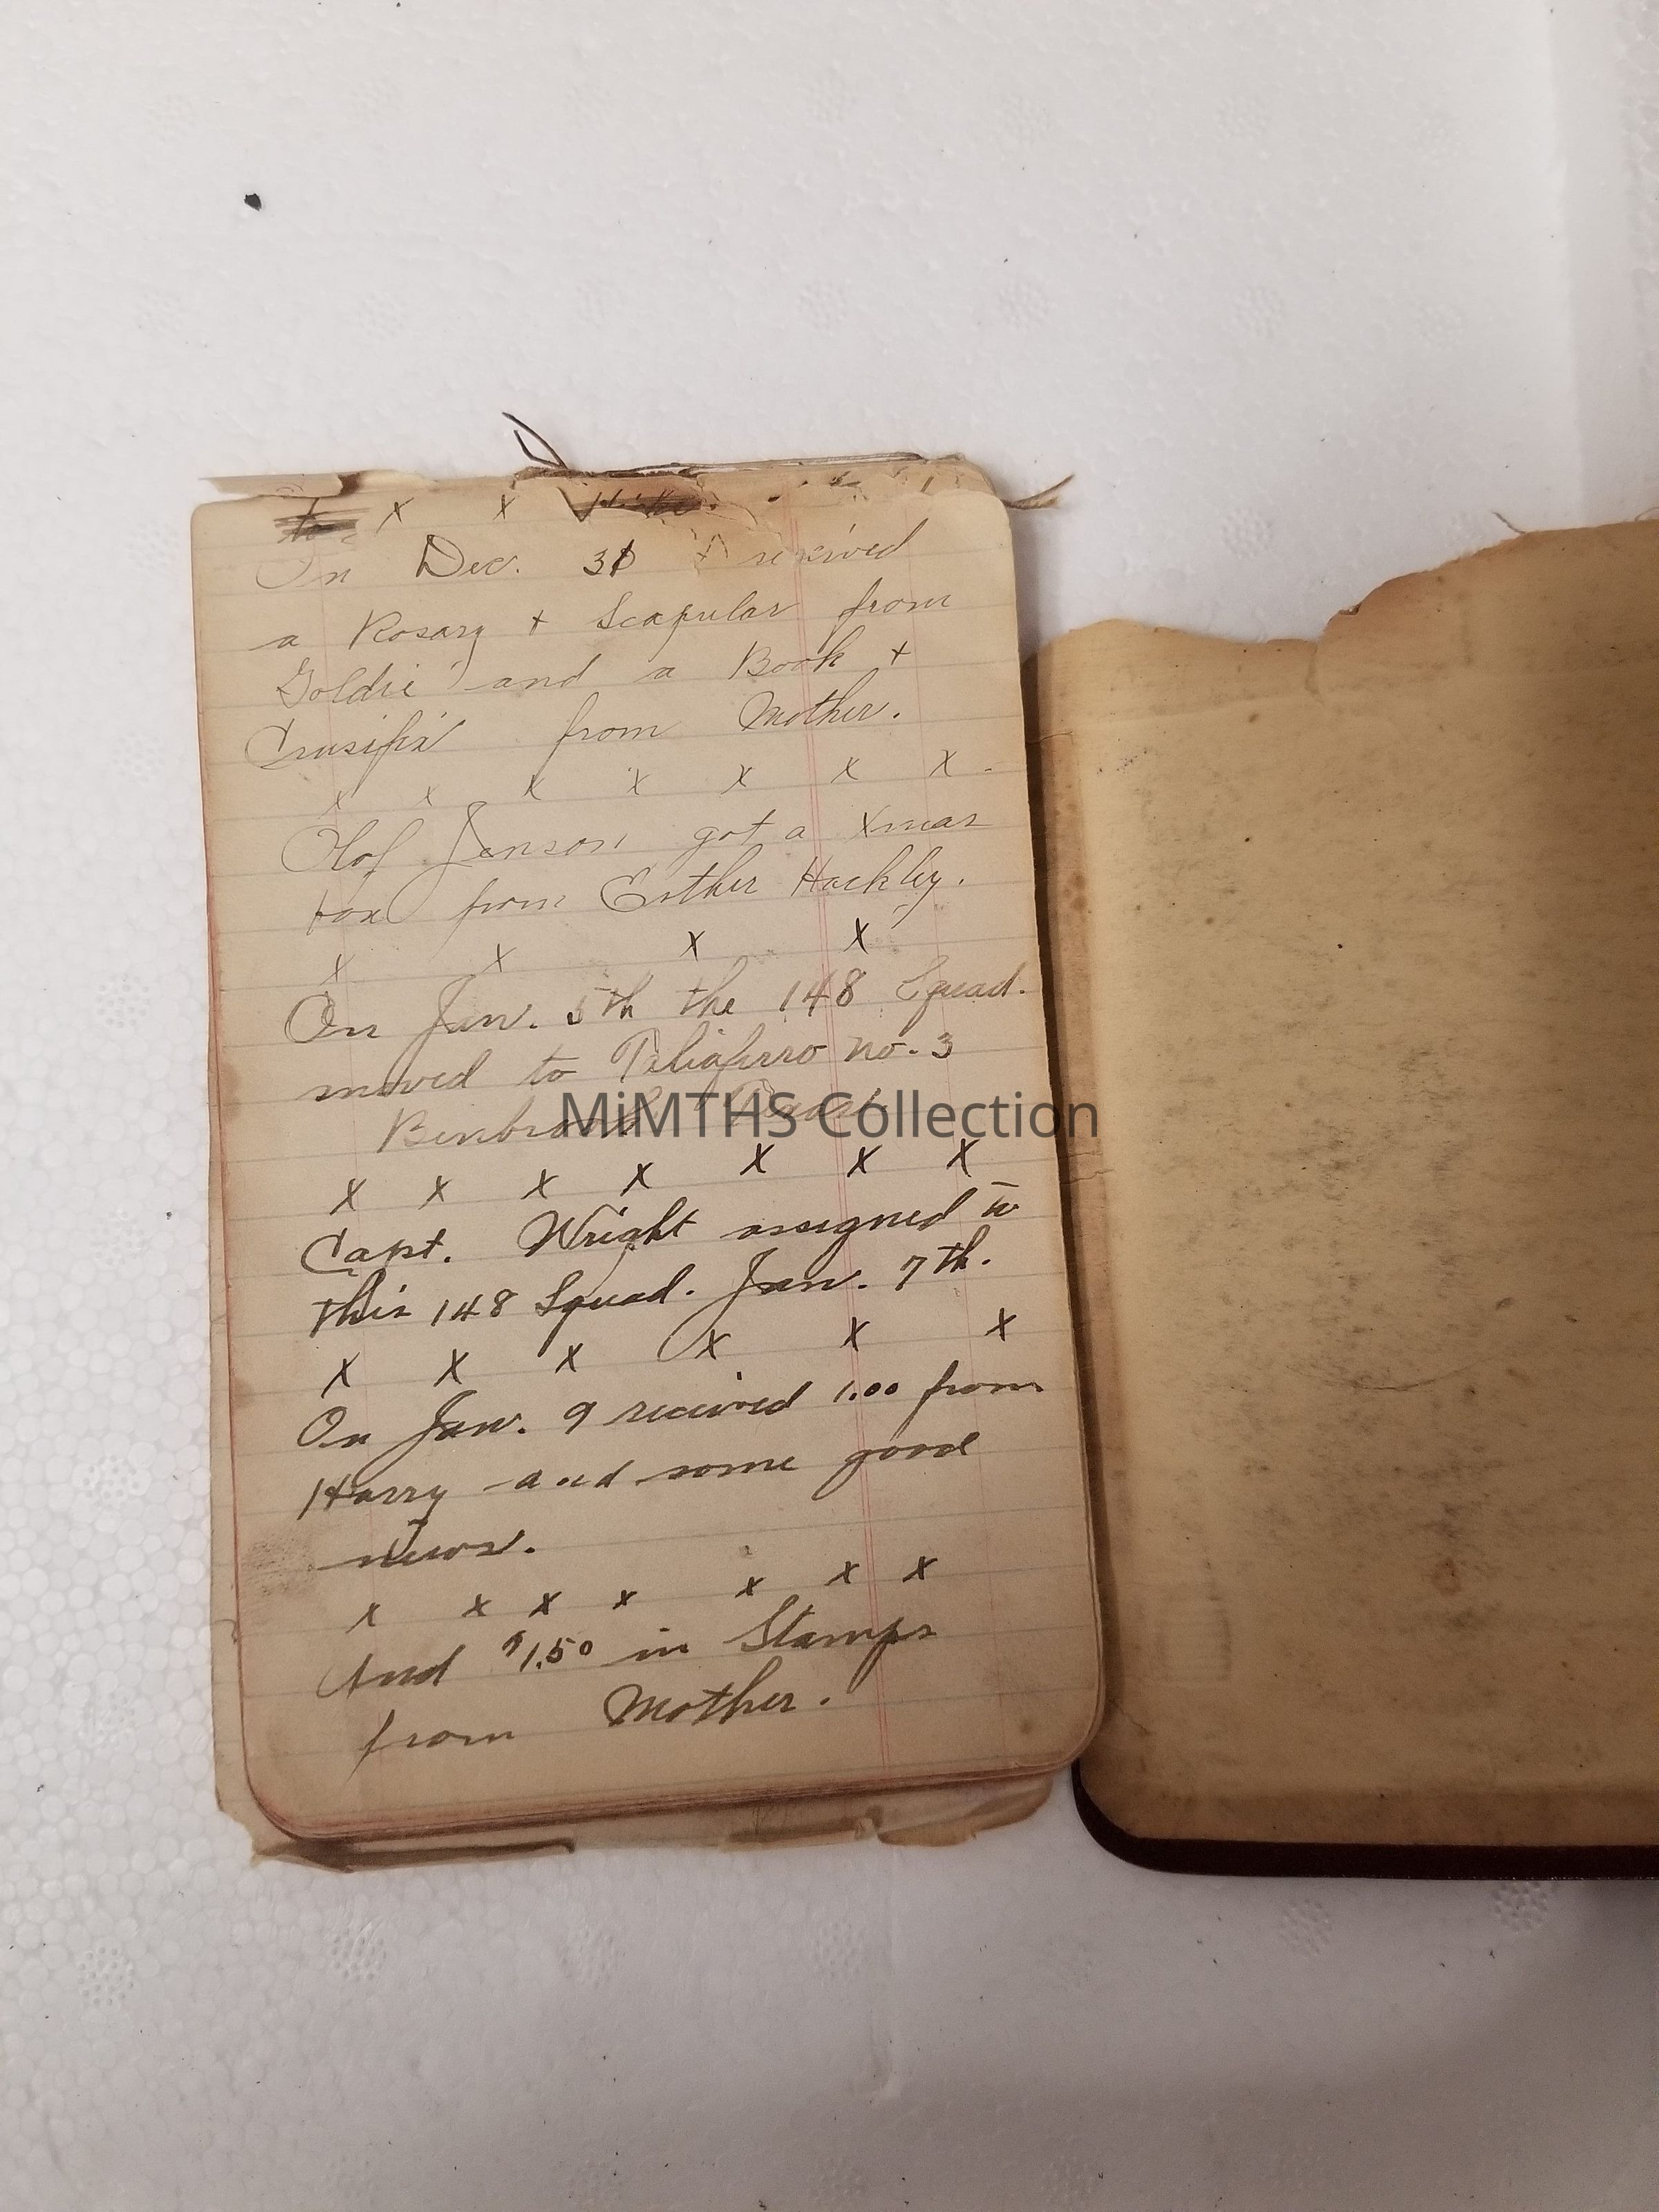 x x
On Dec. 31 I recived
a Rosary + Scapular from
Goldie and a Book +
Crusifix from Mother.
x x x x x x x
Olof Janson got a Xmas
box from Esther Hackley.
x x x x
On Jan. 5th the 148 Squad.
moved to Taliaferro no. 3
Benbrook
MiMTHS Collection
x x x x x x x
Capt. Wright assigned to
this 148 Squad. Jan. 7th.
x x x x x x
On Jan. 9 recived 1.00 from
Harry and some good
news.
x x x x x x x
And $1.50 in Stamps
from Mother.